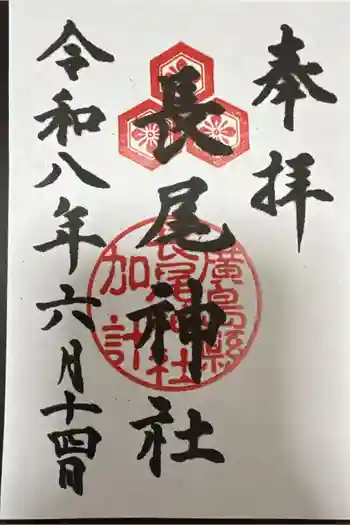 奉拝
長尾神社
廣島縣
長尾神社
加計
令和八年六月十四日